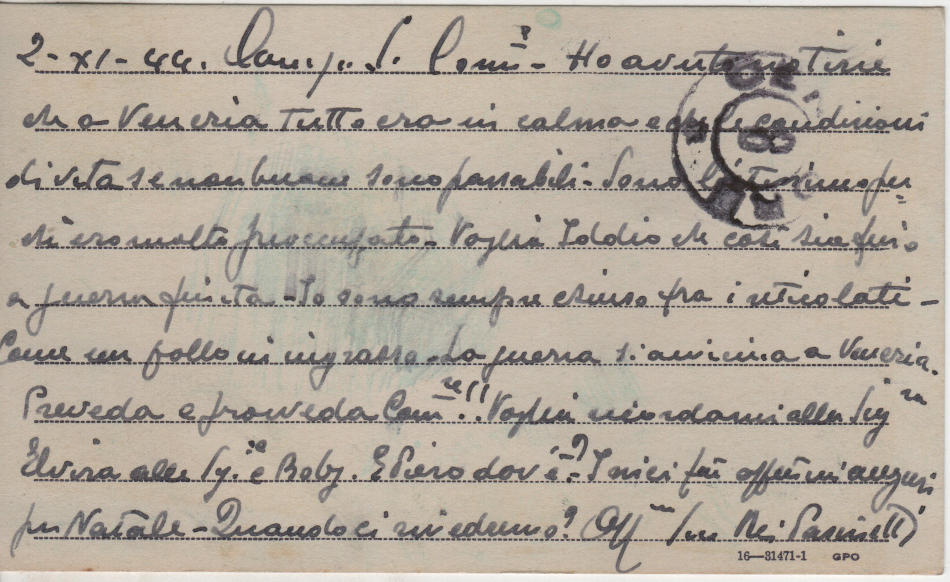 2-XI-44. Caro S. Com.re - Ho avuto notizie
che a Venezia tutto era in calma e che le condizioni
di vita se non buone sono passabili - Sono lietissimo per
chi ero molto preoccupato. Voglia Iddio che così sia fino
a guerra finita - Io sono sempre chiuso fra i reticolati -
Come un pollo mi ingrasso. La guerra si avvicina a Venezia.
Preveda e provveda Com.re!! Voglia ricordarmi alla Sig.ra
Elvira alle Sig.ne e Boby. E Piero dov'è? I miei più affettuosi auguri
per Natale - Quando ci rivedremo? Aff.mo
16—31471-1 GPO